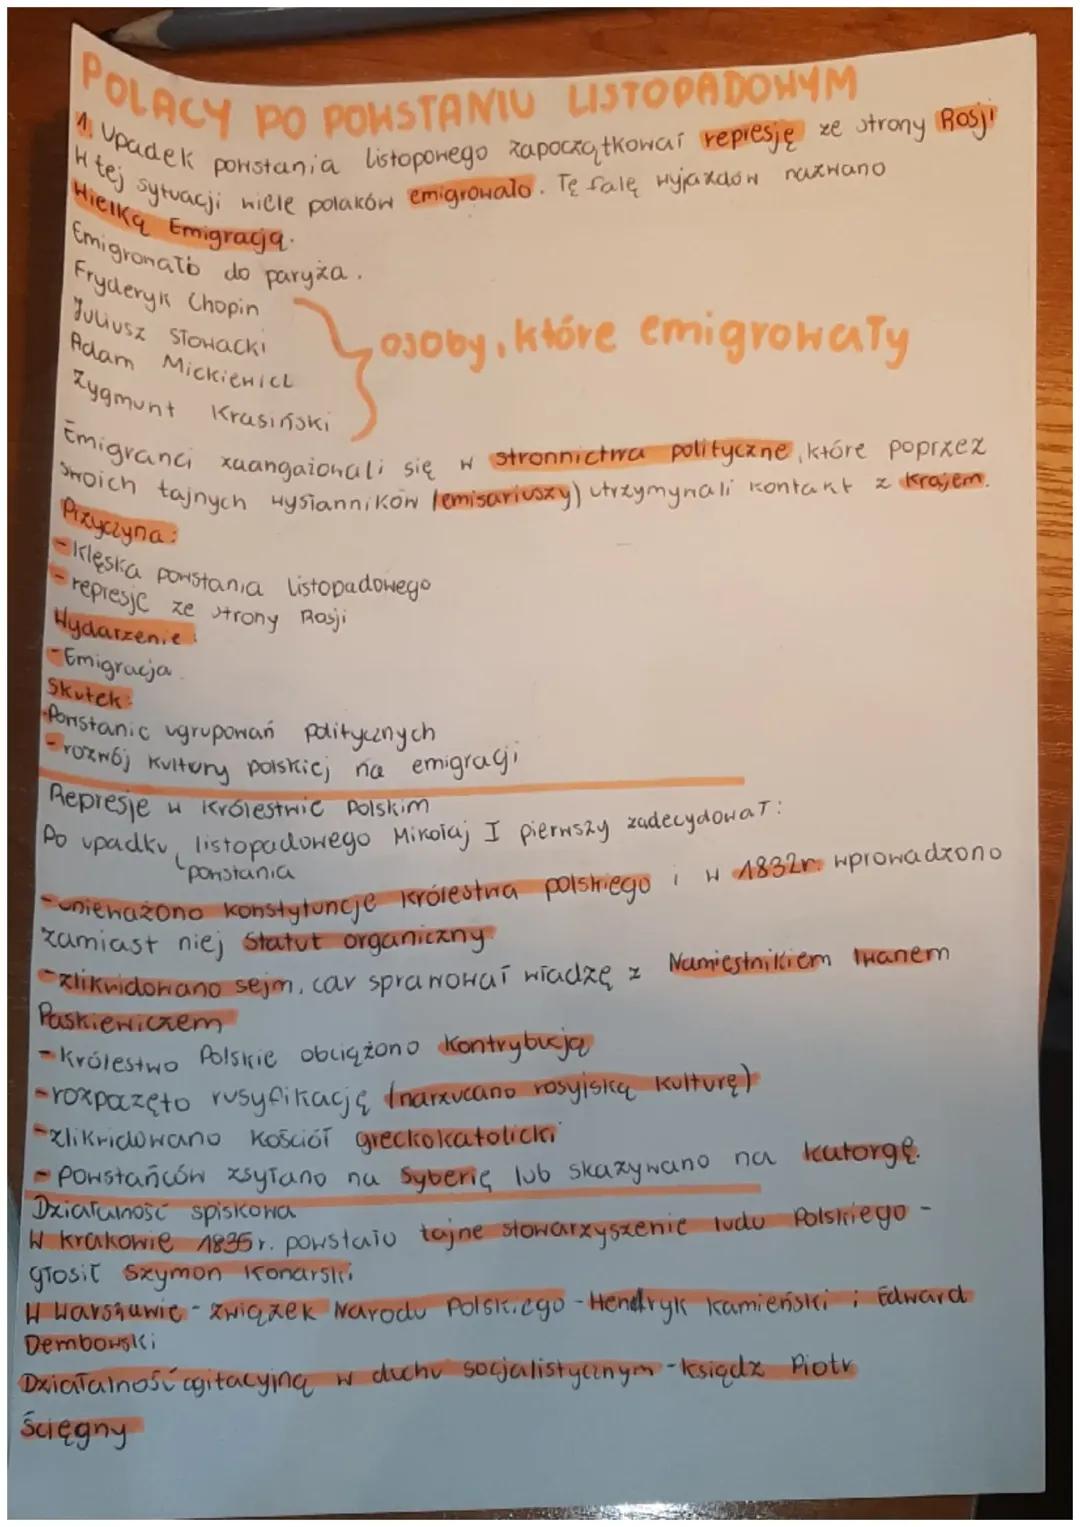 POLACY PO POWSTANIU LISTOPADOWYM
1. Upadek powstania listoponego zapoczątkował represję ze strony Rosji
W tej sytuacji wiele polaków emigrowało. Tę falę wyjazdów nazwano
Wielką Emigracją.
Emigrowało do paryża.
Fryderyk Chopin
Juliusz Słowacki
Adam Mickiewicz
Zygmunt Krasiński
osoby, które emigrowały
Emigranci zaangaiowali się w stronnictwa polityczne, które poprzez
swoich tajnych wysłanników (emisariuszy) utrzymywali kontakt z krajem.
Przyczyna:
-Klęska powstania listopadowego
-represje ze strony Rosji
Wydarzenie:
-Emigracja
Skutek:
-Powstanie ugrupowań politycznych
-rozwój kultury polskiej na emigracji
Represje w Królestwie Polskim
Po upadku listopadowego Mikołaj I pierwszy zadecydował:
powstania
-unieważono konstytuncje Królestwa polskiego i w 1832r. wprowadzono
zamiast niej Statut organiczny.
-zlikwidowano sejm, car sprawował władzę z Namiestnikiem Iwanem
Paskiewiczem
-Królestwo Polskie obciążono kontrybucją
-rozpoczęto rusyfikację (narzucano rosyjską kulturę)
-zlikwidowano Kościół greckokatolicki
-Powstańców zsyłano na Syberię lub skazywano na katorgę.
Działalność spiskowa
W krakowie 1835r. powstało tajne stowarzyszenie ludu Polskiego -
głosił Szymon Konarski
W Warszawie - związek Narodu Polskiego - Hendryk Kamieński i Edward
Dembowski
Działalność agitacyjną w duchu socjalistycznym - ksiądz Piotr
Ściegny